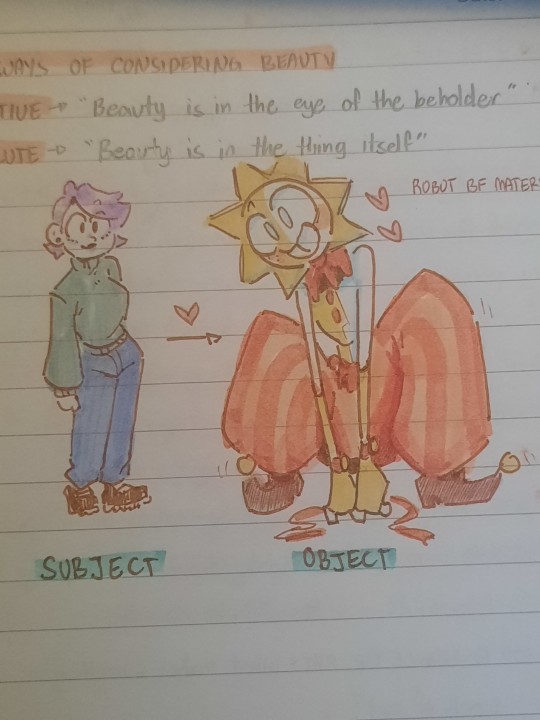 WAYS OF CONSIDERING BEAUTY
TIVE → "Beauty is in the eye of the beholder"
LUTE → "Beauty is in the thing itself"
ROBOT BF MATER
SUBJECT
OBJECT